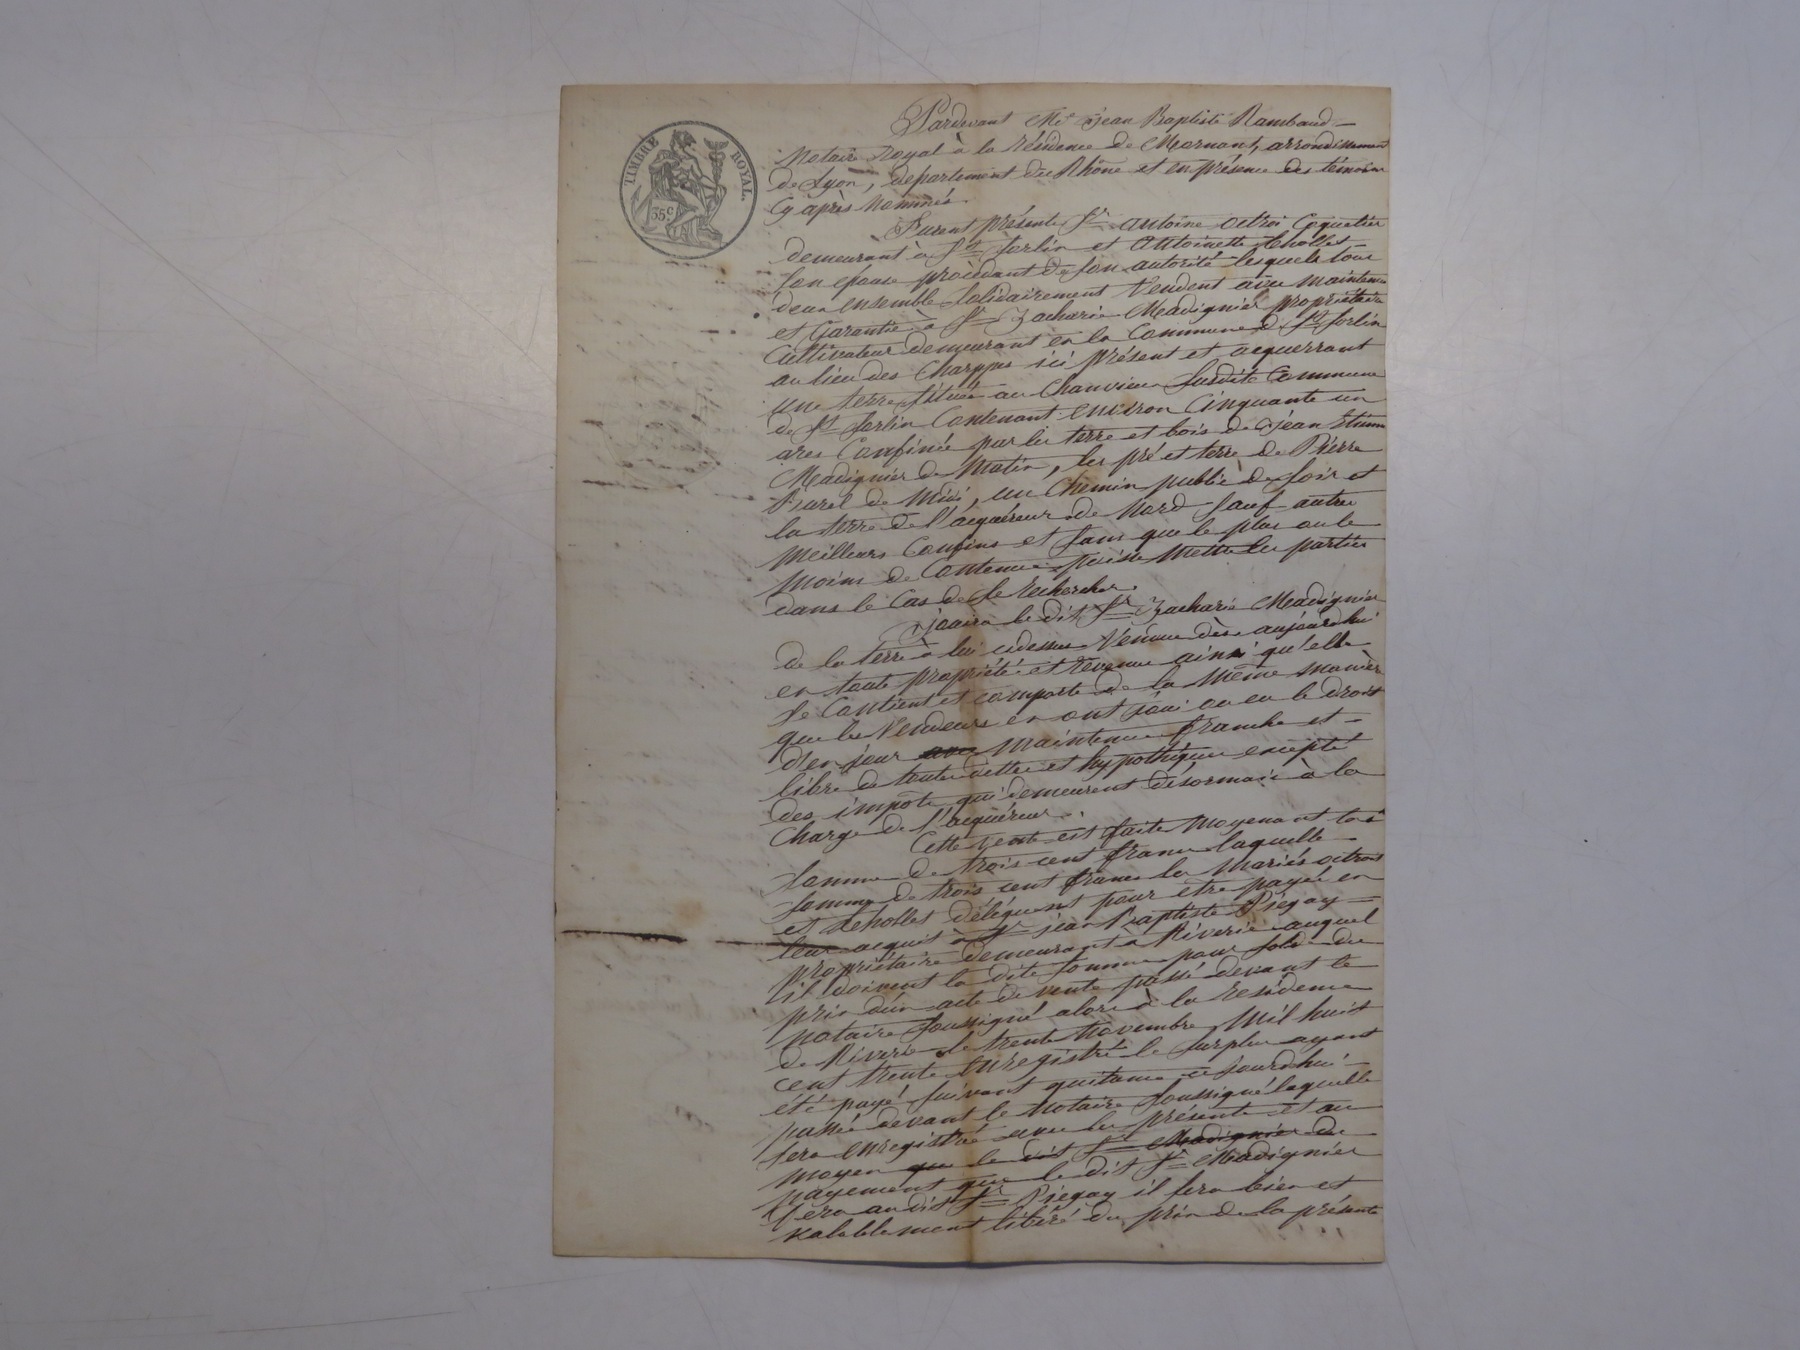 TIMBRE ROYAL
35c
Pardevant Me Jean Baptiste Rambaud
Notaire Royal à la résidence de Mornant, arrondissement
de Lyon, département du Rhône et en présence des témoins
Cy après nommés.
Furent présents Sr antoine Coquetier
demeurant à St Sorlin et Antoinette
son épouse procédant de son autorité lesquels tous
deux ensemble solidairement Vendent avec maintenue
et Garantie à Sr Zacharie Madignier propriétaire
Cultivateur demeurant en la Commune de St Sorlin
au lieu des ici présent et acquerrant
une terre située au Chanvieux susdite Commune
de St Sorlin Contenant environ Cinquante un
ares Confinée par les terre et bois de Jean Etienne
Madignier de Matin, les pré et terre de Pierre
de Midi, un Chemin public de soir et
la terre de l'acquéreur de Nord sauf autres
Meilleurs Confins et sans que le plus ou le
moins de Contenue puisse mettre les parties
dans le Cas de se rechercher.
Jouira le dit Sr Zacharie Madignier
de la terre à lui cidessus Vendue dès aujourdhui
en toute propriété et revenu ainsi qu'elle
se Contient et comporte de la même manière
que les Vendeurs en ont joui ou eu le droit
d'en jouir avec maintenue franche et
libre de toutes dettes et hypothèques excepté
des impots qui demeurent désormais à la
Charge de l'acquéreur.
Cette vente est faite moyennant la
somme de trois cent francs laquelle
somme de trois cent francs les mariés
et délèguent pour être payée en
leur acquit à Sr jean Baptiste Piégay
propriétaire demeurant à Riverie auquel
il doivent la dite somme pour solde du
prix d'un acte de vente passé devant le
notaire soussigné alors à la résidence
de Riverie le trente Novembre Mil huit
cent trente Enregistré le surplus ayant
été payé suivant quitance ce jourdhui
passée devant le Notaire soussigné laquelle
sera enregistrée avec les présentes et au
moyen que le dit Sr Madignier du
payement que le dit Sr Madignier
fera au dit Sr Piégay il sera bien et
valablement libéré du prix de la présente